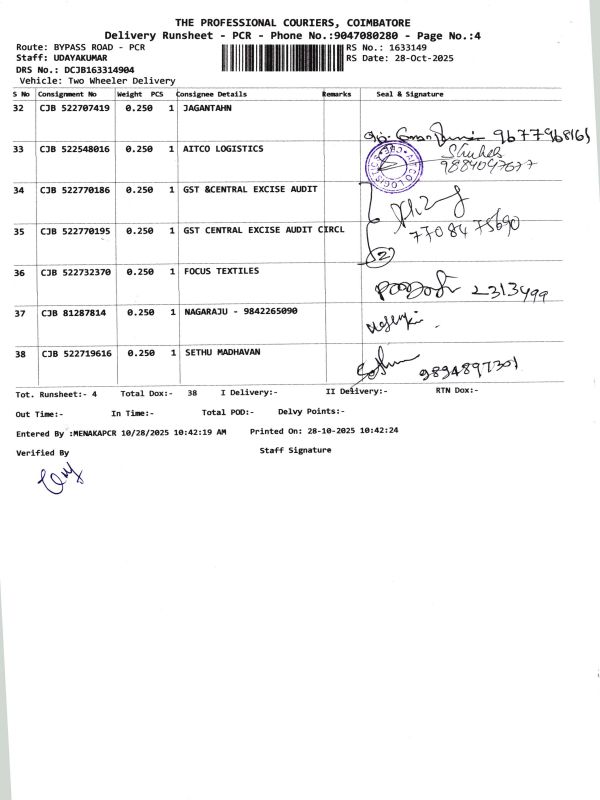 THE PROFESSIONAL COURIERS, COIMBATORE
Delivery Runsheet - PCR - Phone No.:9047080280 - Page No.:4
Route: BYPASS ROAD - PCR RS No.: 1633149
Staff: UDAYAKUMAR RS Date: 28-Oct-2025
DRS No.: DCJB163314904
Vehicle: Two Wheeler Delivery
S No Consignment No Weight PCS Consignee Details Remarks Seal & Signature
32 CJB 522707419 0.250 1 JAGANTAHN
9677968161
33 CJB 522548016 0.250 1 AITCO LOGISTICS
9884047677
34 CJB 522770186 0.250 1 GST &CENTRAL EXCISE AUDIT
35 CJB 522770195 0.250 1 GST CENTRAL EXCISE AUDIT CIRCL
7708475690
2
36 CJB 522732370 0.250 1 FOCUS TEXTILES
2313499
37 CJB 81287814 0.250 1 NAGARAJU - 9842265090
38 CJB 522719616 0.250 1 SETHU MADHAVAN
9894897301
Tot. Runsheet:- 4 Total Dox:- 38 I Delivery:- II Delivery:- RTN Dox:-
Out Time:- In Time:- Total POD:- Delvy Points:-
Entered By :MENAKAPCR 10/28/2025 10:42:19 AM Printed On: 28-10-2025 10:42:24
Verified By Staff Signature